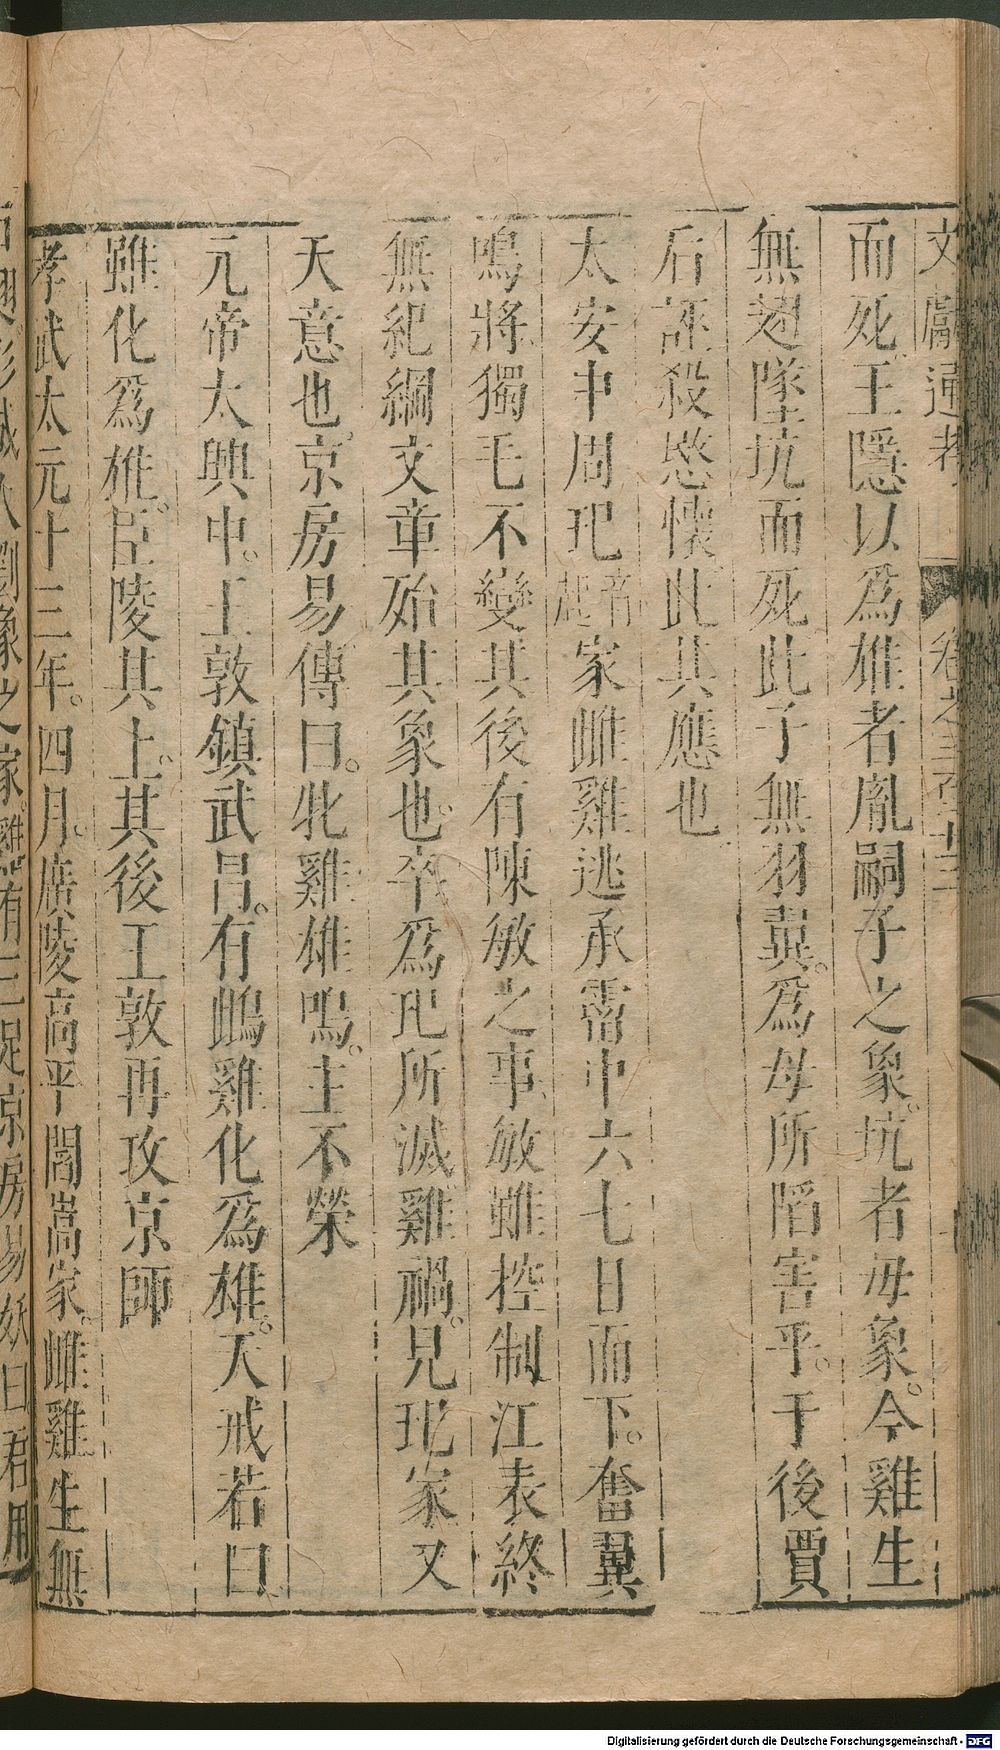 文獻通考 卷之三百十三
而死王隱以爲雄者胤嗣子之象。坑者母象。今雞生
無翅墜坑而死此子無羽翼。爲母所陷害乎。于後賈
后誣殺愍懷此其應也
太安中周玘音起家雌雞逃承霤中六七日而下。奮翼
鳴將獨毛不變其後有陳敏之事敏雖控制江表終
無紀綱文章殆其象也。卒爲玘所滅雞禍。見玘家又
天意也。京房易傳曰。牝雞雄鳴。主不榮
元帝太興中。王敦鎮武昌。有雌雞化爲雄。天戒若曰
雌化爲雄。臣陵其上。其後王敦再攻京師
孝武太元十三年。四月。廣陵高平閻嵩家。雌雞生無
右翅。彭城人劉象之家。雞有三足京房易妖曰君用
Digitalisierung gefördert durch die Deutsche Forschungsgemeinschaft - DFG